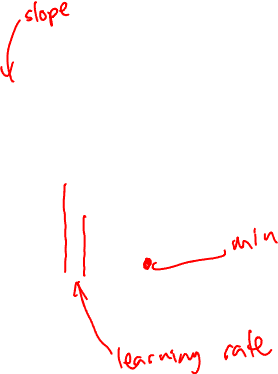 slope
min
learning rate